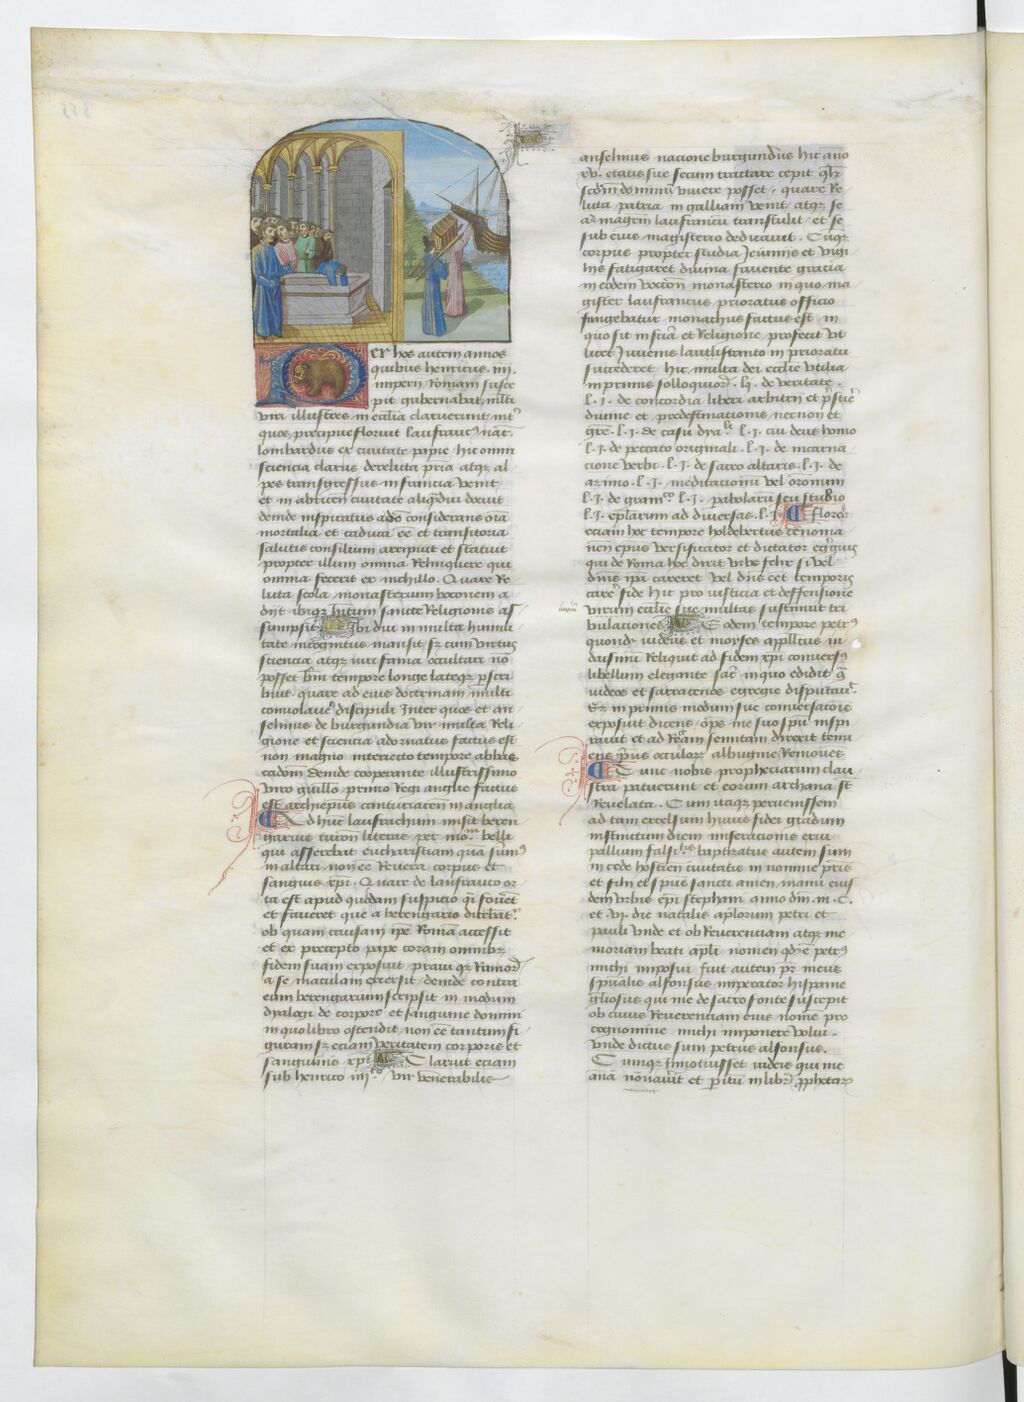 Per hos autem annos
quibus henricus . iiij .
imperii Romani susce
pit gubernabat, multi
viri illustres in ecclia claruerunt, int'
quos precipue floruit laufrancus nac.
lombardus ex civitate papie, hic omni
sciencia clarus derelicta pria atqz al
pes transgressus in francia venit,
et in abricen civitate aliqdiu docuit
deinde inspiratus a do considerans oia
mortalia et caduca ee et transitoria
salutis consilium arripuit et statuit
propter illum omnia Relinquere qui
omnia fecerit ex nichillo . Quare Re
licta scola monasterium boconem a
diit ibiqz hitum sancte Religionis as
sumpsit . Ibi diu in multa humili
tate incognitus mansit, sz cum virtus
sciencia atqz viri fama occultari no
posset bru tempore longe lateqz pscri
biut . quare ad eius doctrinam multi
convolaver discipuli Inter quos et an
selmus de burgundia vir multa Reli
gione et sciencia adornatus factus est
non magno interiecto tempore abbas
cadom deinde cooperante illustrissimo
viro guillo primo Regi anglie factus
est archiepus canturiacen in anglia
Ad huc laufrachum misit beren
garius turon literas per mo belli
qui asserebat eucharistiam qua sum'
in altari, non ee Revera corpus et
sanguis xpi . Quare de laufranco or
ta est apud quosdam suspicio q fovet
et faveret que a berengario dicebat'.
ob quam causam ipe Roma accessit
et ex precepto pape coram omnibz
fidem suam exposuit, praui qz Rumor
a se maculam excersit, deinde contra
eum berengarium scripsit in modum
dyalogi de corpore et sanguine domini
in quo libro ostendit, non ee tantum fi
guram sz eciam veritatem corporis et
sanguine xpi . Claruit eciam
sub henrico iiij° . vir venerabilis
anselmus nacione burgundus hic ano
xv . etatis sue secum tractare cepit qlr
scdm dominu vivere posset, quare Re
licta patria in galliam venit, atqz se
ad magrm laufrancu transtulit, et se
sub eius magisterio dedicavit . Cuqz
corpus propter studia Jeiuniis et vigi
liis fatigaret divina favente gracia
in eodem bocton monasterio in quo ma
gister laufrancus prioratus officio
fungebatur monachus factus est, in
quo sit in scia et Religione profecit vt
licet Juvenis laufranco in prioratu
succederet, hic multa dei ecclie vtilia
in primis solloquior . lj . de veritate .
l . j . de concordia liberi arbitrii et pscie
divine et predestinacionis necnon et
gre . l . j . de casu dyabli l . j . cur deus homo
l . j . de peccato originali . l . j . de incarna
cione verbi . l . j . de sacro altaris . l . j . de
l . j . meditacionu vel oronum
l . j . de gram l . j . pabolaru seu studio
l . j . eplarum ad diversas . l . j . Floror
eciam hoc tempore holdebertus cenoma
nen epus versificator et dictator egregius
qui de Roma hoc dixit vrbs felix si vel
dnis ipa careret vel dnis eet temporis
care fide hic pro iusticia et deffensione
virum ecclie sue multas sustinuit tri
bulaciones . Eodem tempore petrus
quonda iudeus et moyses appllatus iu
daismu Reliquit ad fidem xpi conversus
libellum elegante fac in quo edidit
iudeos et sarracenos egregie disputavit .
Et in primis modum sue conversacione
exposuit dicens, ops me suo spu inspi
ravit et ad Rcam semitam direxit tenu
ens prius oculorz albuginē Removens
Tunc nobis propheciarum clau
stra patuerunt et eorum archana st
Revelata . Cum itaqz pervenissem
ad tam excelsum huius fidei gradum
institutum diem miseracionis exui
pallium falsitis baptizatus autem sum
in cede hostien civitatis in nomine pris
et filii et spus sancti amen manu eius
dem vrbis epi stephani anno dni . m . C .
et . vi . die natalis aplorum petri et
pauli vnde et ob Reverenciam atqz me
moriam beati apli nomen qde petrus
michi imposui fuit autem pr meus
spualis alfonsus imperator hispanie
gliosus qui me de sacro fonte suscepit
ob cuius Reverenciam eius nomen pro
cognomine michi imponere volui .
vnde dictus sum petrus alfonsus .
Cumqz innotuisset iudeis qui me